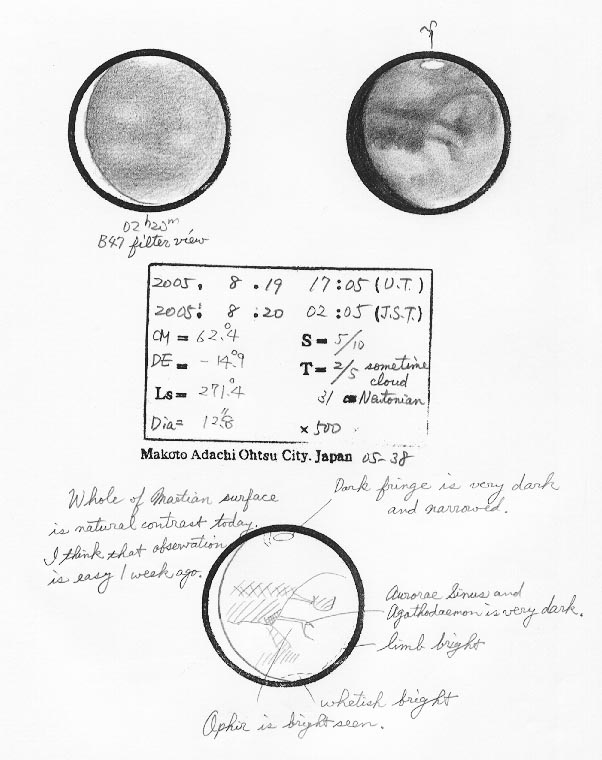 02ʰ20ᵐ
B47 filter view
2005. 8 .19 17:05 (U.T.)
2005. 8 .20 02:05 (J.S.T.)
CM = 62.°4 S = 5/10
DE = -14.°9 T = 2/5 sometime cloud
Ls = 271.°4 31 cm Newtonian
Dia = 12.″8 ×500
Makoto Adachi Ohtsu City. Japan 05-38
Dark fringe is very dark
and narrowed.
Whole of Martian surface
is natural contrast today.
I think that obsewation
is easy 1 week ago.
Aurorae Sinus and
Agathodaemon is very dark.
limb bright
whetish bright
Ophir is bright seen.